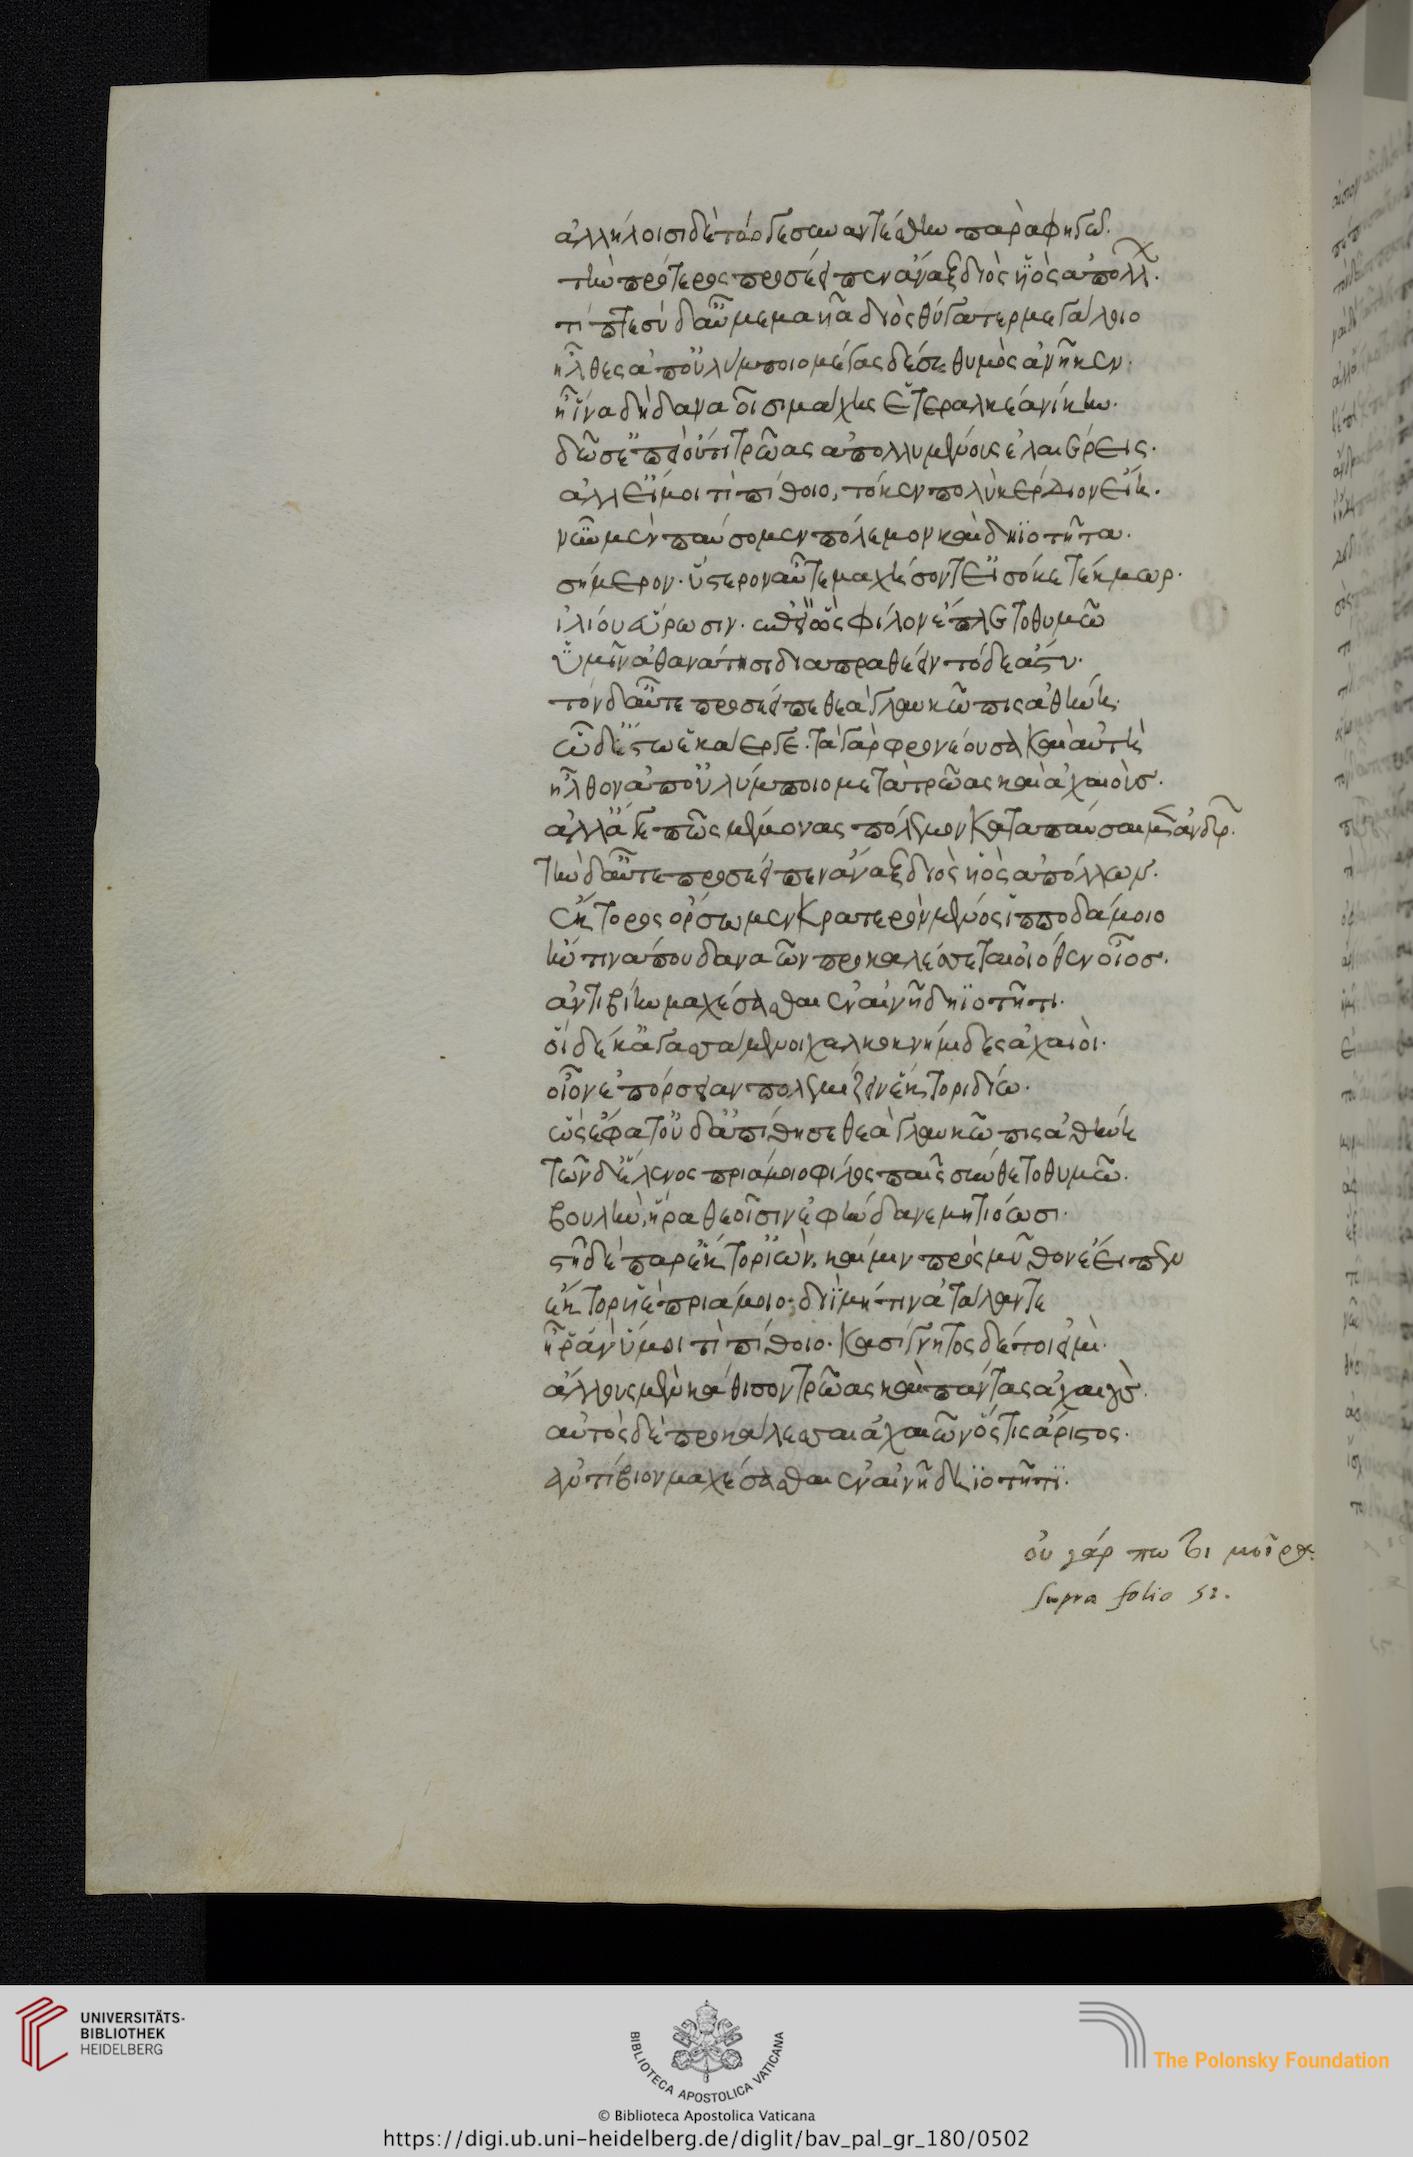 ἀλλήλοισι δὲ τώγε συναντέσθην παρὰ φηγῶ.
τὴν πρότερος προσέειπεν ἄναξ διὸς ὑιὸς ἀπόλλων.
τίπτε σὺ δ' αὖ μεμαυῖα διὸς θύγατερ μεγάλοιο
ἦλθες ἀπ' οὐλύμποιο μέγας δέ σε θυμὸς ἀνῆκεν.
ἦ ἵνα δὴ δαναοῖσι μάχης ἑτεραλκέα νίκην.
δῶς ἐπεὶ οὔτι τρῶας ἀπολλυμένους ἐλεαίρεις.
ἀλλ' εἴ μοί τι πίθοιο, τό κεν πολὺ κέρδιον εἴη.
νῦν μὲν παύσομεν πόλεμον καὶ δηϊοτῆτα.
σήμερον. ὕστερον αὖτε μαχήσοντ' εἰσόκε τέκμωρ.
ἰλίου εὕρωσιν. ἐπεὶ ὣς φίλον ἔπλετο θυμῶ
ὑμῖν ἀθανάτησι διαπραθέειν τόδε ἄστυ.
τὸν δ' αὖτε προσέειπε θεὰ γλαυκῶπις ἀθήνη.
ὧδ' ἔστω ἑκάεργε. τὰ γὰρ φρονέουσα καὶ αὐτὴ
ἦλθον ἀπ' οὐλύμποιο μετὰ τρῶας καὶ ἀχαιούσ.
ἀλλ' ἄγε πῶς μέμονας πόλεμον καταπαυσαιμεν ἀνδρῶν.
τὴν δ' αὖτε προσέειπεν ἄναξ διὸς ὑιὸς ἀπόλλων.
ἕκτορος ὄρσωμεν κρατερὸν μένος ἱπποδάμοιο
ἤν τινά που δαναῶν προκαλέσσεται οἰόθεν οἶοσ.
ἀντιβίην μαχέσασθαι ἐν αἰνῆ δηϊοτῆτι.
οἱ δέ κ' ἀγασσάμενοι χαλκοκνήμιδες ἀχαιοί.
οἶον ἐπόρσειαν πολεμίζειν ἕκτορι δίω.
ὣς ἔφατ' οὐδ' ἀπίθησε θεὰ γλαυκῶπις ἀθήνη
τῶν δ' ἕλενος πριάμοιο φίλος παῖς σύνθετο θυμῶ.
βουλὴν, ἥ ρα θεοῖσιν ἐφήνδανε μητιόωσι.
στῆ δὲ παρ' ἕκτορ' ἰὼν, καί μιν πρὸς μῦθον ἔειπεν
ἕκτορ ὑιὲ πριάμοιο. διῒ μῆτιν ἀτάλαντε
ἦ ρά νύ μοί τι πίθοιο. κασίγνητος δέ τοι εἰμὶ.
ἄλλους μὲν κάθισον τρῶας καὶ πάντας ἀχαιούσ.
αὐτὸς δὲ προκάλεσσαι ἀχαιῶν ὅστις ἄριστος.
ἀντίβιον μαχέσασθαι ἐν αἰνῆ δηϊοτῆτι.
οὐ γάρ πω τοι μοῖρα
supra folio 52.
UNIVERSITÄTS-
BIBLIOTHEK
HEIDELBERG
BIBLIOTECA APOSTOLICA VATICANA
The Polonsky Foundation
© Biblioteca Apostolica Vaticana
https://digi.ub.uni-heidelberg.de/diglit/bav_pal_gr_180/0502